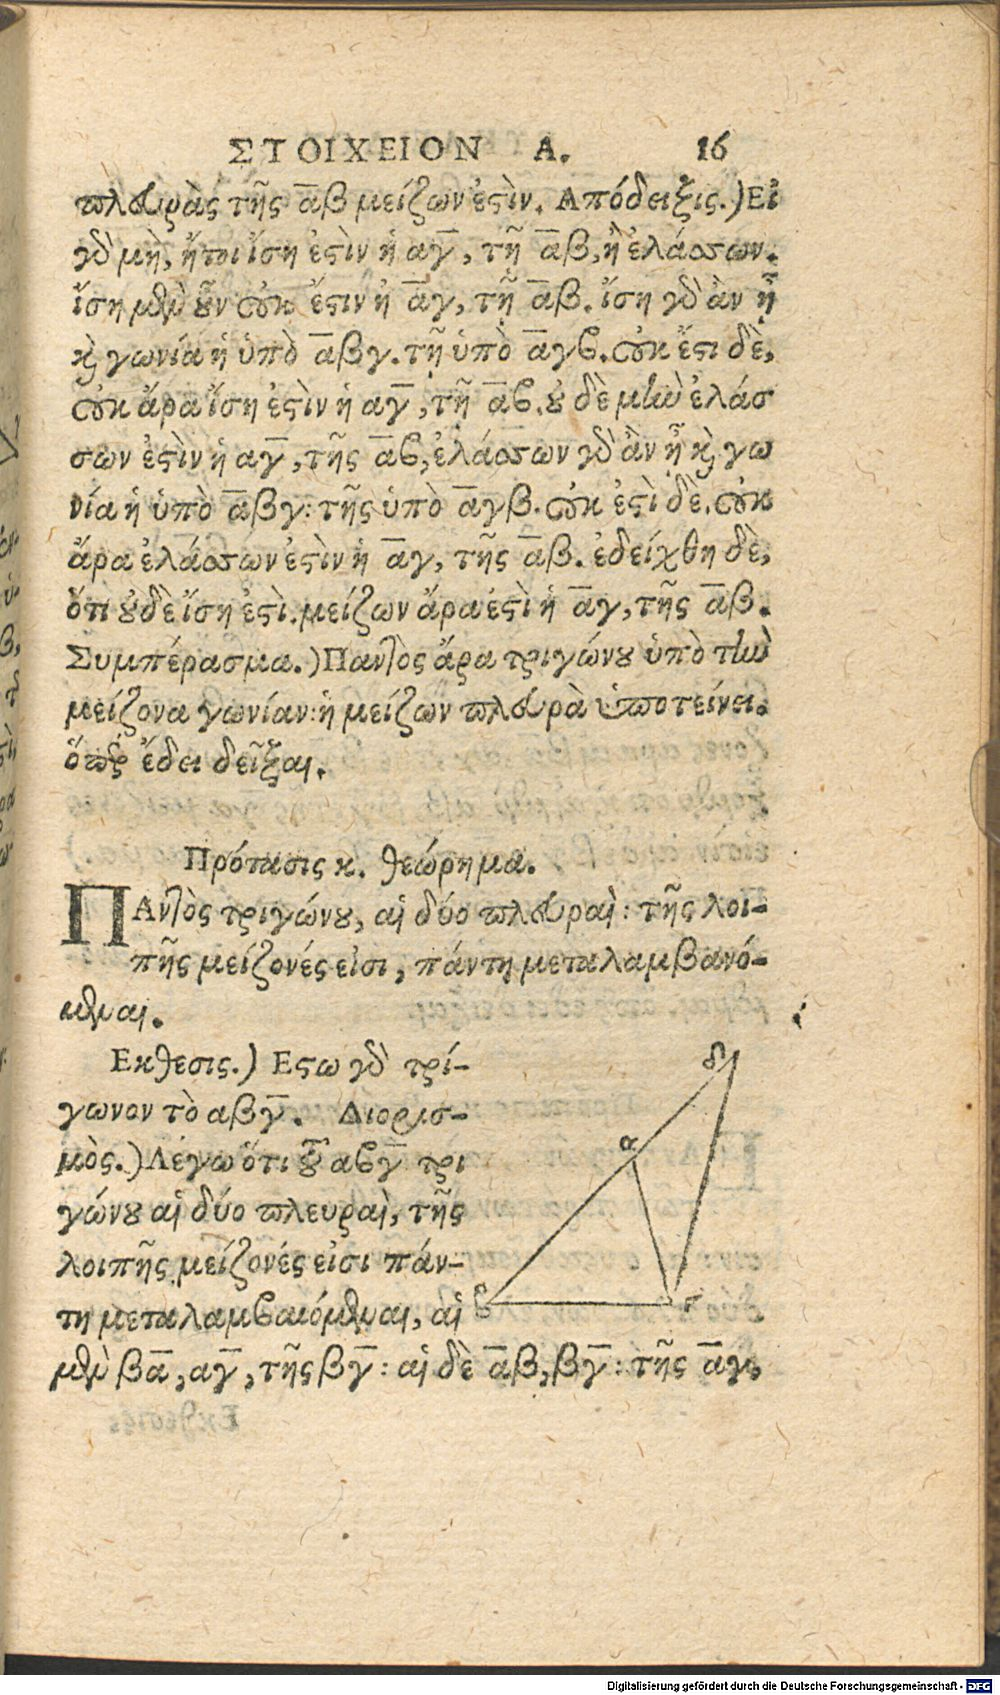 ΣΤΟΙΧΕΙΟΝ Α. 16
πλευρᾶς τῆς α̅β μείζων ἐστὶν. Απόδειξις.) Εἰ
γὰρ μὴ, ἤτοι ἴση ἐστὶν ἡ αγ̅, τῇ α̅β, ἢ ἐλάσσων.
ἴση μὲν οὖν οὐκ ἔστιν ἡ α̅γ, τῇ α̅β. ἴση γὰρ ἂν ἦ
καὶ γωνία ἡ ὑπὸ α̅βγ. τῇ ὑπὸ α̅γϐ. οὐκ ἔστι δὲ,
οὐκ ἄρα ἴση ἐστὶν ἡ αγ̅, τῇ α̅ϐ. οὐδὲ μὴν ἐλάσ
σων ἐστὶν ἡ αγ̅, τῆς α̅ϐ, ἐλάσσων γὰρ ἂν ἦ καὶ γω
νία ἡ ὑπὸ α̅βγ: τῆς ὑπὸ α̅γβ. οὐκ ἐστὶ δὲ. οὐκ
ἄρα ἐλάσσων ἐστὶν ἡ α̅γ, τῆς α̅β. ἐδείχθη δὲ,
ὅτι οὐδὲ ἴση ἐστὶ. μείζων ἄρα ἐστὶ ἡ α̅γ, τῆς α̅β.
Συμπέρασμα.) Παντὸς ἄρα τριγώνου ὑπὸ τὴν
μείζονα γωνίαν: ἡ μείζων πλευρὰ ὑποτείνει.
ὅπερ ἔδει δεῖξαι.
Πρότασις κ. θεώρημα.
ΠΑντὸς τριγώνου, αἱ δύο πλευραὶ: τῆς λοι-
πῆς μείζονές εἰσι, πάντη μεταλαμβανό-
μεναι.
Εκθεσις.) Εστω γὰρ τρί-
γωνον τὸ αβγ̅. Διορισ-
μὸς.) Λέγω ὅτι τοῦ αϐγ̅ τρι
γώνου αἱ δύο πλευραὶ, τῆς
λοιπῆς μείζονές εἰσι πάν-
τη μεταλαμϐανόμεναι, αἱ
μὲν βα̅, αγ̅, τῆς βγ̅: αἱ δὲ α̅β, βγ̅: τῆς α̅γ,
δ
α
ϐ γ
Digitalisierung gefördert durch die Deutsche Forschungsgemeinschaft - DFG